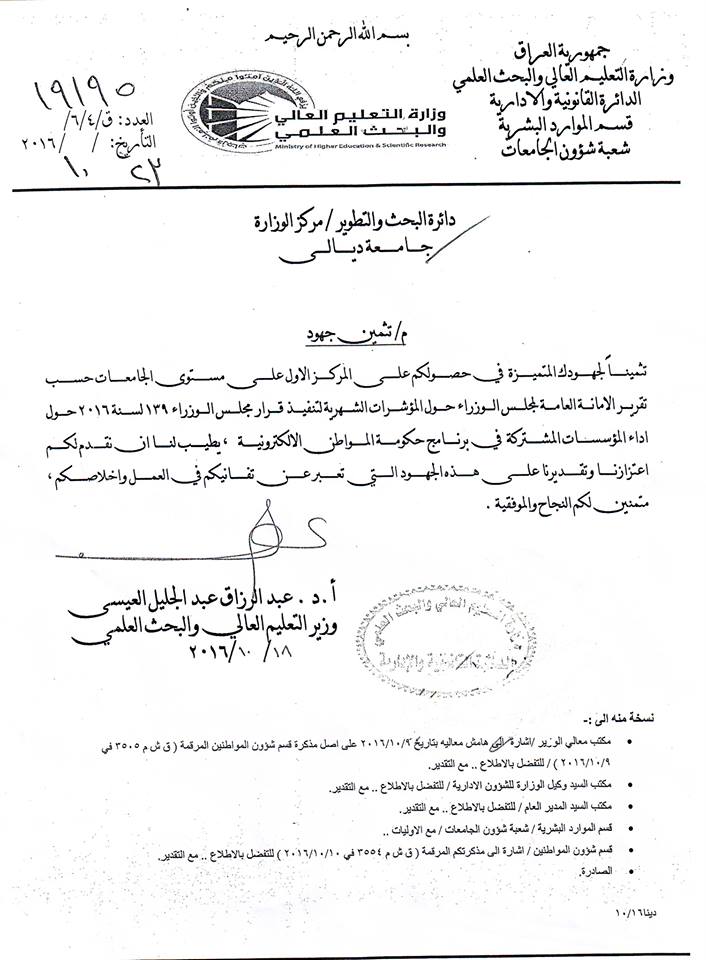 بسم الله الرحمن الرحيم
جمهورية العراق
وزارة التعليم العالي والبحث العلمي
الدائرة القانونية والادارية
قسم الموارد البشرية
شعبة شؤون الجامعات
وزارة التعليم العالي
والبحث العلمي
Ministry of Higher Education & Scientific Research
١٩١٩٥
العدد: ق/٦/٤/
التأريخ: / /٢٠١٦
٢٣ ١٠
دائرة البحث والتطوير / مركز الوزارة
جامعة ديالى
م/ تثمين جهود
تثميناً لجهودك المتميزة في حصولكم على المركز الاول على مستوى الجامعات حسب
تقرير الامانة العامة لمجلس الوزراء حول المؤشرات الشهرية لتنفيذ قرار مجلس الوزراء ١٣٩ لسنة ٢٠١٦ حول
اداء المؤسسات المشتركة في برنامج حكومة المواطن الالكترونية ، يطيب لنا ان نقدم لكم
اعتزازنا وتقديرنا على هذه الجهود التي تعبر عن تفانيكم في العمل واخلاصكم ،
متمنين لكم النجاح والموفقية .
أ.د. عبد الرزاق عبد الجليل العيسى
وزير التعليم العالي والبحث العلمي
٢٠١٦/١٠/١٨
وزارة التعليم العالي والبحث العلمي
الدائرة القانونية والإدارية
نسخة منه الى :-
• مكتب معالي الوزير /اشارة الى هامش معاليه بتاريخ ٢٠١٦/١٠/٩ على اصل مذكرة قسم شؤون المواطنين المرقمة ( ق ش م ٣٥٠٥ في
٢٠١٦/١٠/٩ ) / للتفضل بالاطلاع .. مع التقدير.
• مكتب السيد وكيل الوزارة للشؤون الادارية / للتفضل بالاطلاع .. مع التقدير.
• مكتب السيد المدير العام / للتفضل بالاطلاع .. مع التقدير.
• قسم الموارد البشرية / شعبة شؤون الجامعات / مع الاوليات ..
• قسم شؤون المواطنين / اشارة الى مذكرتكم المرقمة ( ق ش م ٣٥٥٤ في ٢٠١٦/١٠/١٠ ) للتفضل بالاطلاع .. مع التقدير.
• الصادرة.
دينا١٠/١٦